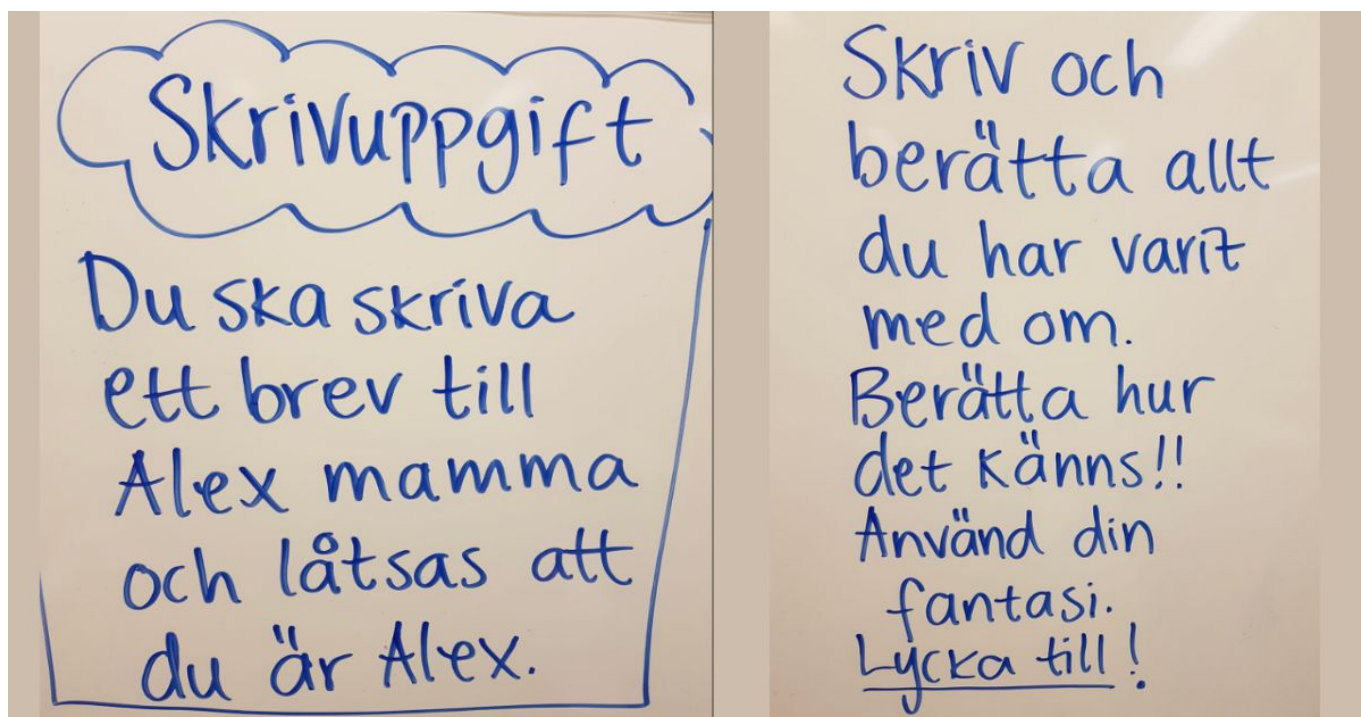 Skrivuppgift
Du ska skriva
ett brev till
Alex mamma
och låtsas att
du är Alex.
Skriv och
berätta allt
du har varit
med om.
Berätta hur
det känns!!
Använd din
fantasi.
Lycka till!